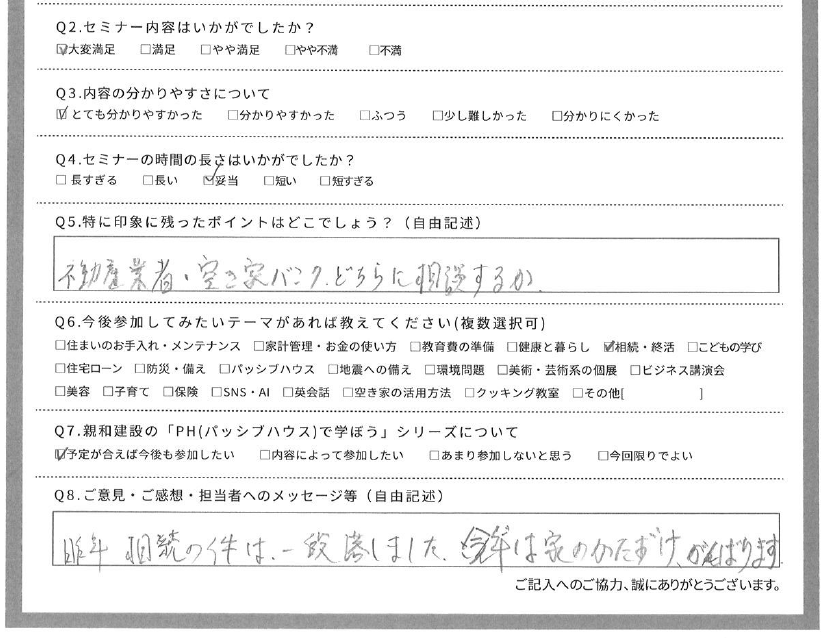 Q2.セミナー内容はいかがでしたか？
☑大変満足 □満足 □やや満足 □やや不満 □不満
Q3.内容の分かりやすさについて
☑とても分かりやすかった □分かりやすかった □ふつう □少し難しかった □分かりにくかった
Q4.セミナーの時間の長さはいかがでしたか？
□長すぎる □長い ☑妥当 □短い □短すぎる
Q5.特に印象に残ったポイントはどこでしょう？（自由記述）
不動産業者・空き家バンク.どちらに相談するか.
Q6.今後参加してみたいテーマがあれば教えてください(複数選択可)
□住まいのお手入れ・メンテナンス □家計管理・お金の使い方 □教育費の準備 □健康と暮らし ☑相続・終活 □こどもの学び
□住宅ローン □防災・備え □パッシブハウス □地震への備え □環境問題 □美術・芸術系の個展 □ビジネス講演会
□美容 □子育て □保険 □SNS・AI □英会話 □空き家の活用方法 □クッキング教室 □その他[ ]
Q7.親和建設の「PH(パッシブハウス)で学ぼう」シリーズについて
☑予定が合えば今後も参加したい □内容によって参加したい □あまり参加しないと思う □今回限りでよい
Q8.ご意見・ご感想・担当者へのメッセージ等（自由記述）
昨年 相続の件は、一段落しました. 今年は家のかたずけ、がんばります
ご記入へのご協力、誠にありがとうございます。